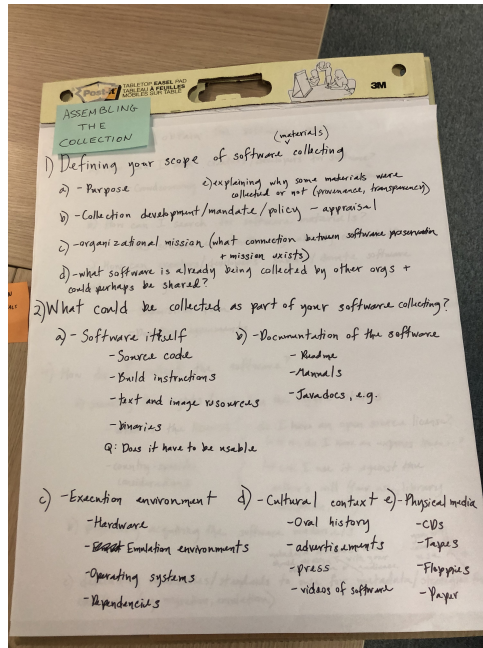 Post-it
TABLETOP EASEL PAD
TABLEAU À FEUILLES
MOBILES SUR TABLE
3M
ASSEMBLING
THE
COLLECTION
(materials)
1) Defining your scope of software collecting
a) - Purpose
e) explaining why some materials were
collected or not (provenance, transparency)
b) - Collection development/mandate/policy - appraisal
c) - organizational mission (what connection between software preservation
+ mission exists)
d) - what software is already being collected by other orgs +
could perhaps be shared?
2) What could be collected as part of your software collecting?
a) - Software itself
- Source code
- Build instructions
- text and image resources
- binaries
Q: Does it have to be usable
b) - Documentation of the software
- Readme
- Manuals
- Javadocs, e.g.
c) - Execution environment
- Hardware
- Emulation environments
- Operating systems
- Dependencies
d) - Cultural context
- Oral history
- advertisements
- press
- videos of software
e) - Physical media
- CDs
- Tapes
- Floppies
- Paper